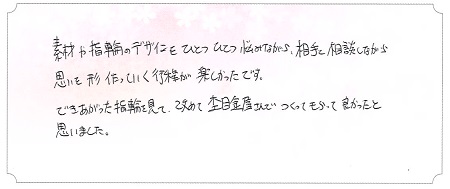 素材や指輪のデザインをひとつひとつ悩みながら、相手と相談しながら
思いを形作っていく行程が楽しかったです。
できあがった指輪を見て、改めて杢目金屋さんでつくってもらって良かったと
思いました。